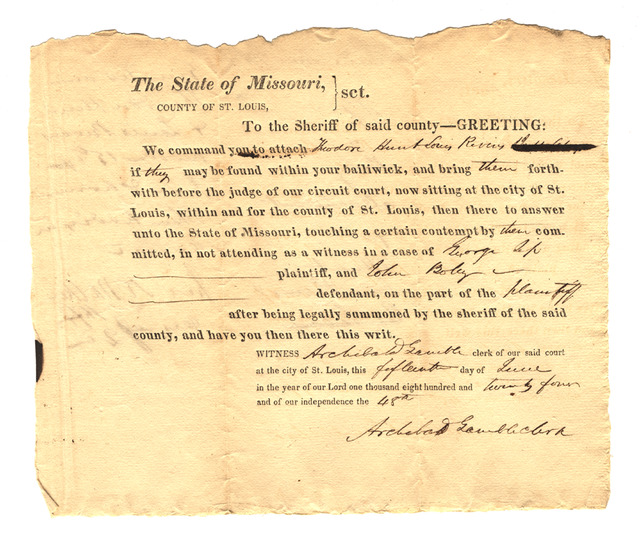 The State of Missouri,
COUNTY OF ST. LOUIS,
} sct.
To the Sheriff of said county—GREETING:
We command you to attach Theodore Hunt Louis Rivers
if they may be found within your bailiwick, and bring them forth-
with before the judge of our circuit court, now sitting at the city of St.
Louis, within and for the county of St. Louis, then there to answer
unto the State of Missouri, touching a certain contempt by them com-
mitted, in not attending as a witness in a case of George
plaintiff, and John
defendant, on the part of the plaintiff
after being legally summoned by the sheriff of the said
county, and have you then there this writ.
WITNESS Archibald Gamble clerk of our said court
at the city of St. Louis, this fifteenth day of June
in the year of our Lord one thousand eight hundred and twenty four
and of our independence the 48th
Archibald Gamble clerk